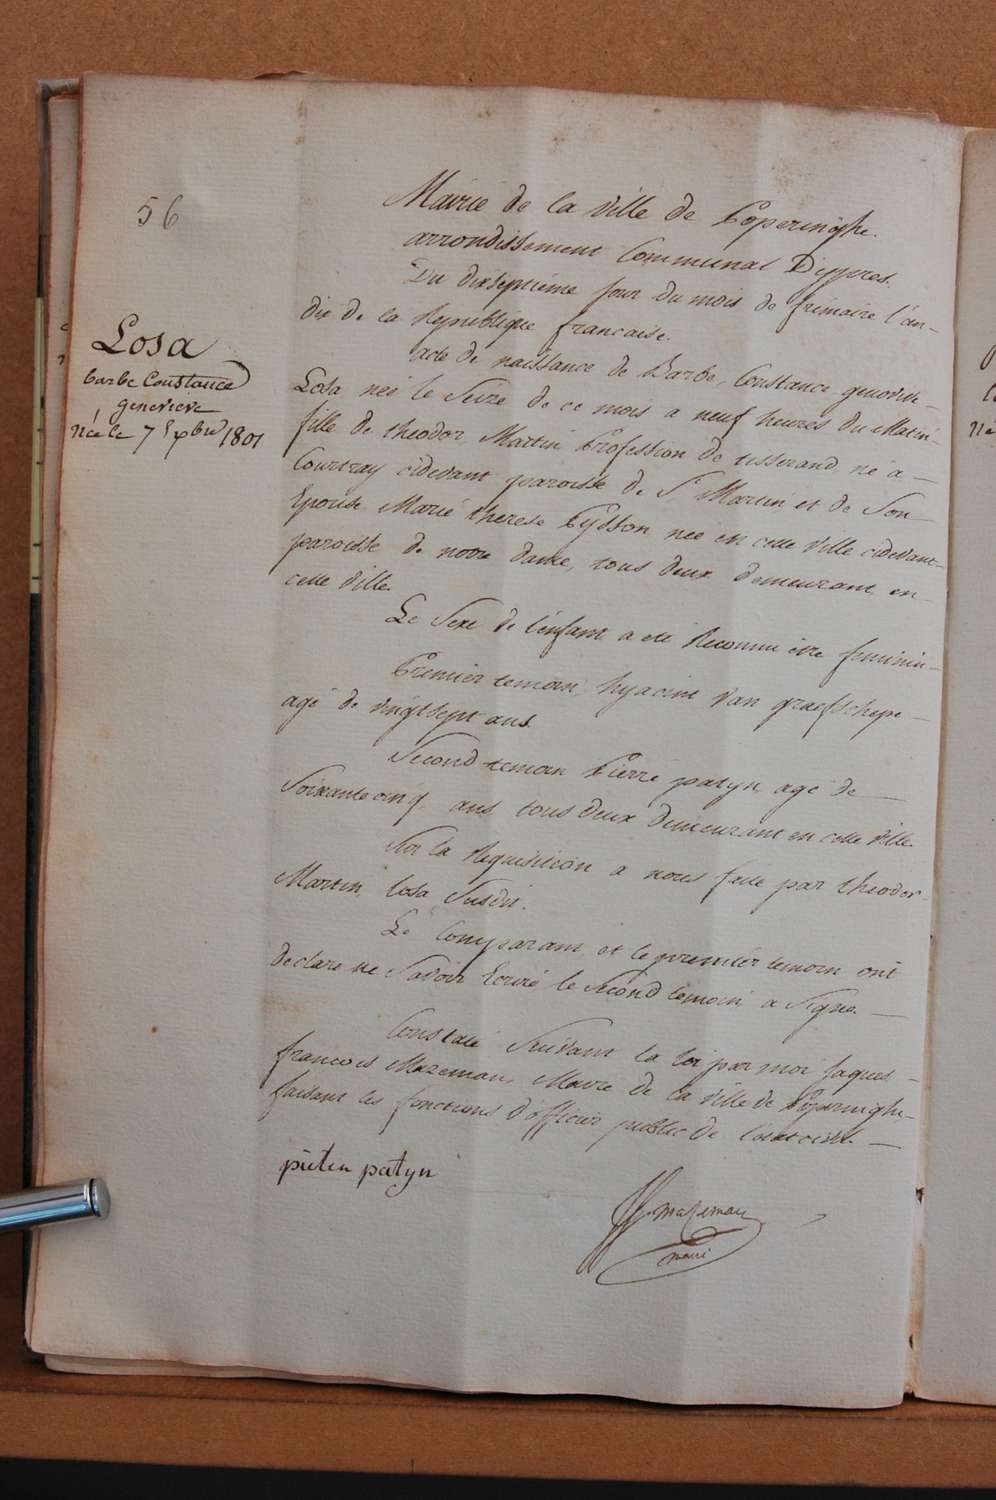 56
Mairie de la ville de Poperinghe.
arrondissement Communal Dippres.
Du dixseptieme jour du mois de frimaire l'an-
dix de la Republique francaise.
Losa
barbe Constance
genevieve
Née le 7 Xbre 1801
acte de naissance de Barbe, Constance genovive
Losa neé le Seize de ce mois a neuf heures du Matin-
fille de theodor Martin Profession de tisserand né a-
Courtray cidevant paroisse de St Martin et de Son
Epouse Marie therese Pysson neé en cette ville cidevant-
paroisse de notre dame, tous deux demeurant en
cette ville.
Le Sexe de l'enfant a eté Reconnu etre feminin-
Premier temoin hyacint van graefschepe-
agé de vingtsept ans
Second temoin Pierre patyn agé de
Soixantecinq ans tous deux demeurant en cette ville
Sur la Requisition a nous faite par theodor-
Martin losa Susdit.
Le Comparant et le premier temoin ont
declare ne Savoir Ecrire le Second temoin a Signe.
Constaté Suivant la loi par moi Jaques-
francois Mazeman, Maire de la ville de Poperinghe,
faisant les fonctions d'officier public de l'etat civil.
pieter patyn
Mazeman
maire